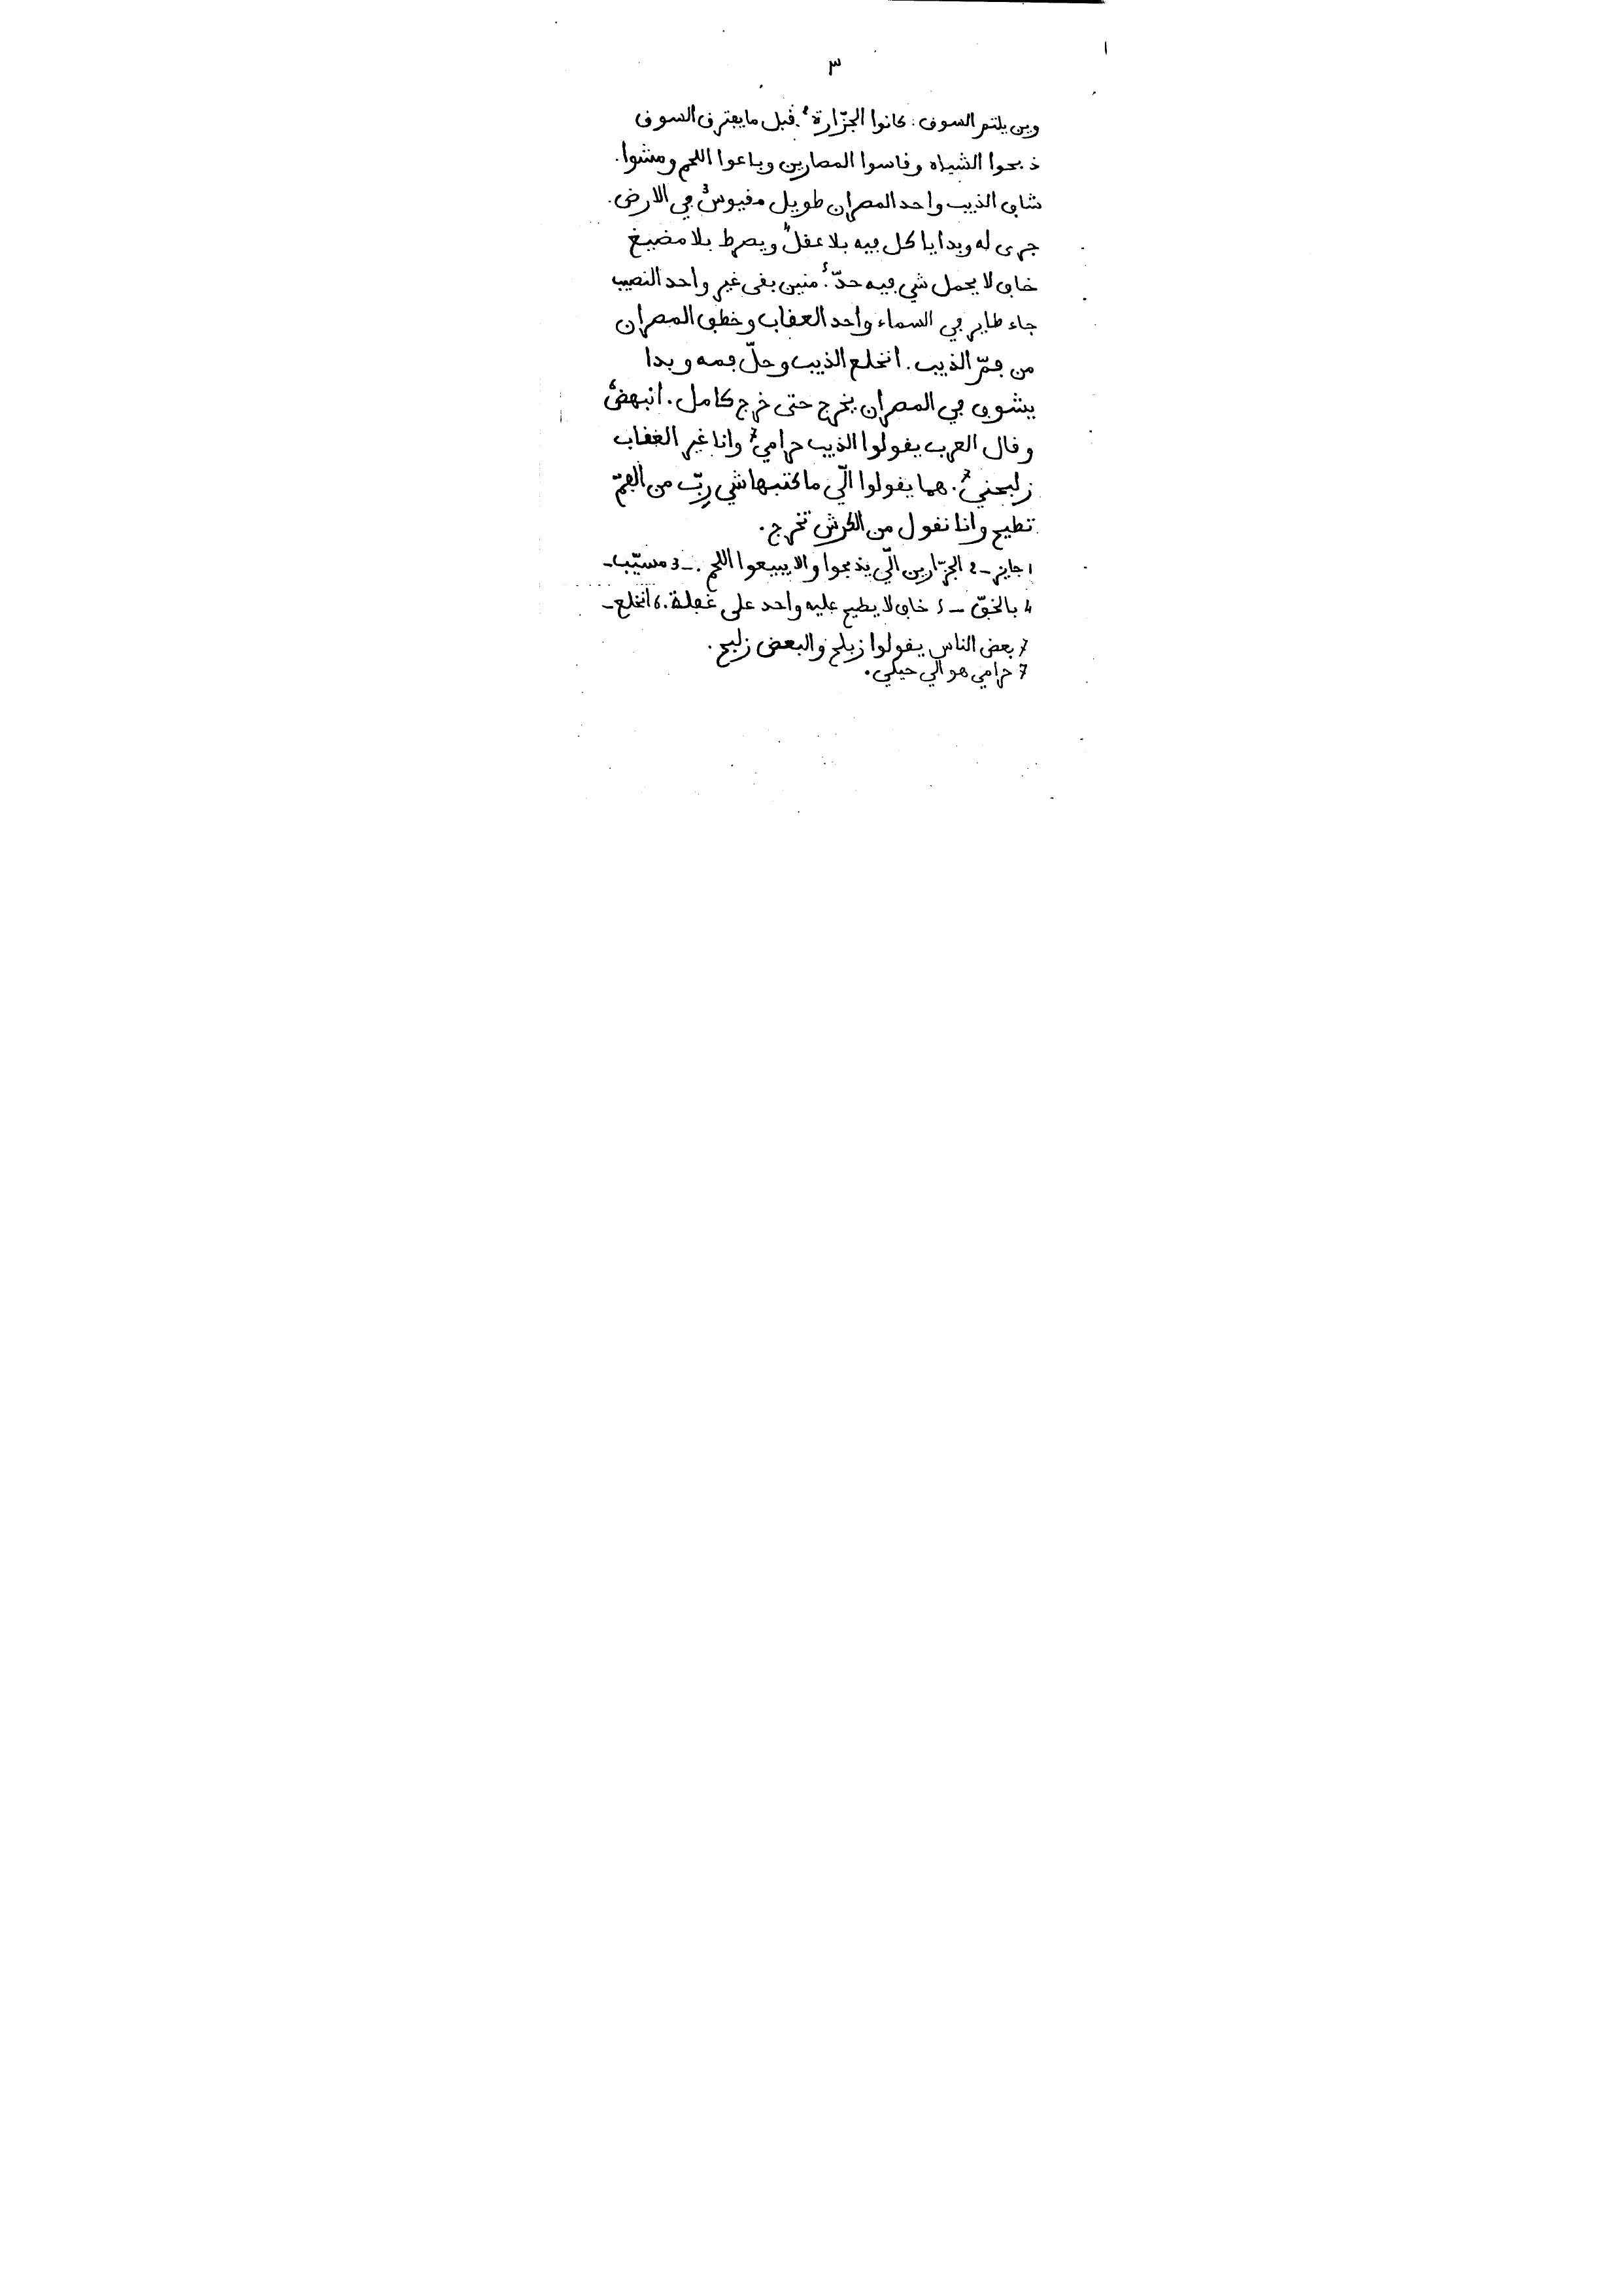 ٣
وين يلتم السوق. كانوا الجزّارة2. قبل ما يفترق السوق
ذبحوا الشياه وقاسوا المصارين وباعوا اللحم ومشوا.
شاف الذيب واحد المصران طويل مقيوس3 في الارض.
جرى له وبدا ياكل فيه بلا عقل4 ويصرط بلا مضيغ
خاف لا يحمل شي فيه حدّ5. منين بقى غير واحد النصيب
جاء طاير في السماء واحد العقاب وخطف المصران
من فمّ الذيب. انخلع الذيب وحلّ فمه وبدا
يشوف في المصران يخرج حتى خرج كامل. انبهض6
وقال العرب يقولوا الذيب حرامي7 وانا غير العقاب
زلبحني7. هما يقولوا الّي ما كتبها شي ربّي من الفمّ
تطيح وانا نقول من الكرش تخرج.
1 جايز – 2 الجزّارين الّي يذبحوا والا يبيعوا اللحم. – 3 مسيّب –
4 بالخفّ – 5 خاف لا يطيح عليه واحد على غفلة. 6 انخلع –
7 بعض الناس يقولوا زبلح والبعض زلبح.
7 حرامي هو الي حيلي.